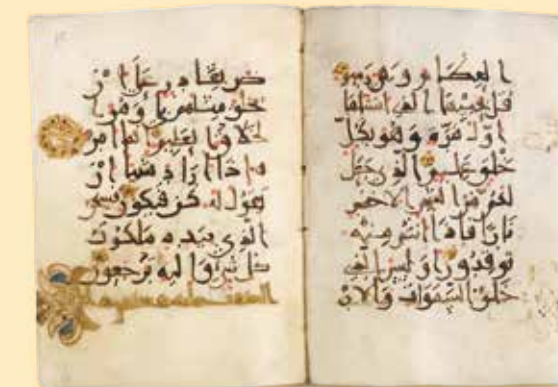 العظام وهي رميم
قل يحييها الذي أنشأها
أول مرة وهو بكل
خلق عليم الذي جعل
لكم من الشجر الأخضر
نارا فإذا أنتم منه
توقدون أوليس الذي
خلق السموات والأر
ض بقادر على أن
يخلق مثلهم بلى وهو
الخلاق العليم إنما أمر
ه إذا أراد شيئا أن
يقول له كن فيكون فسبحن
الذي بيده ملكوت
كل شيء وإليه ترجعون